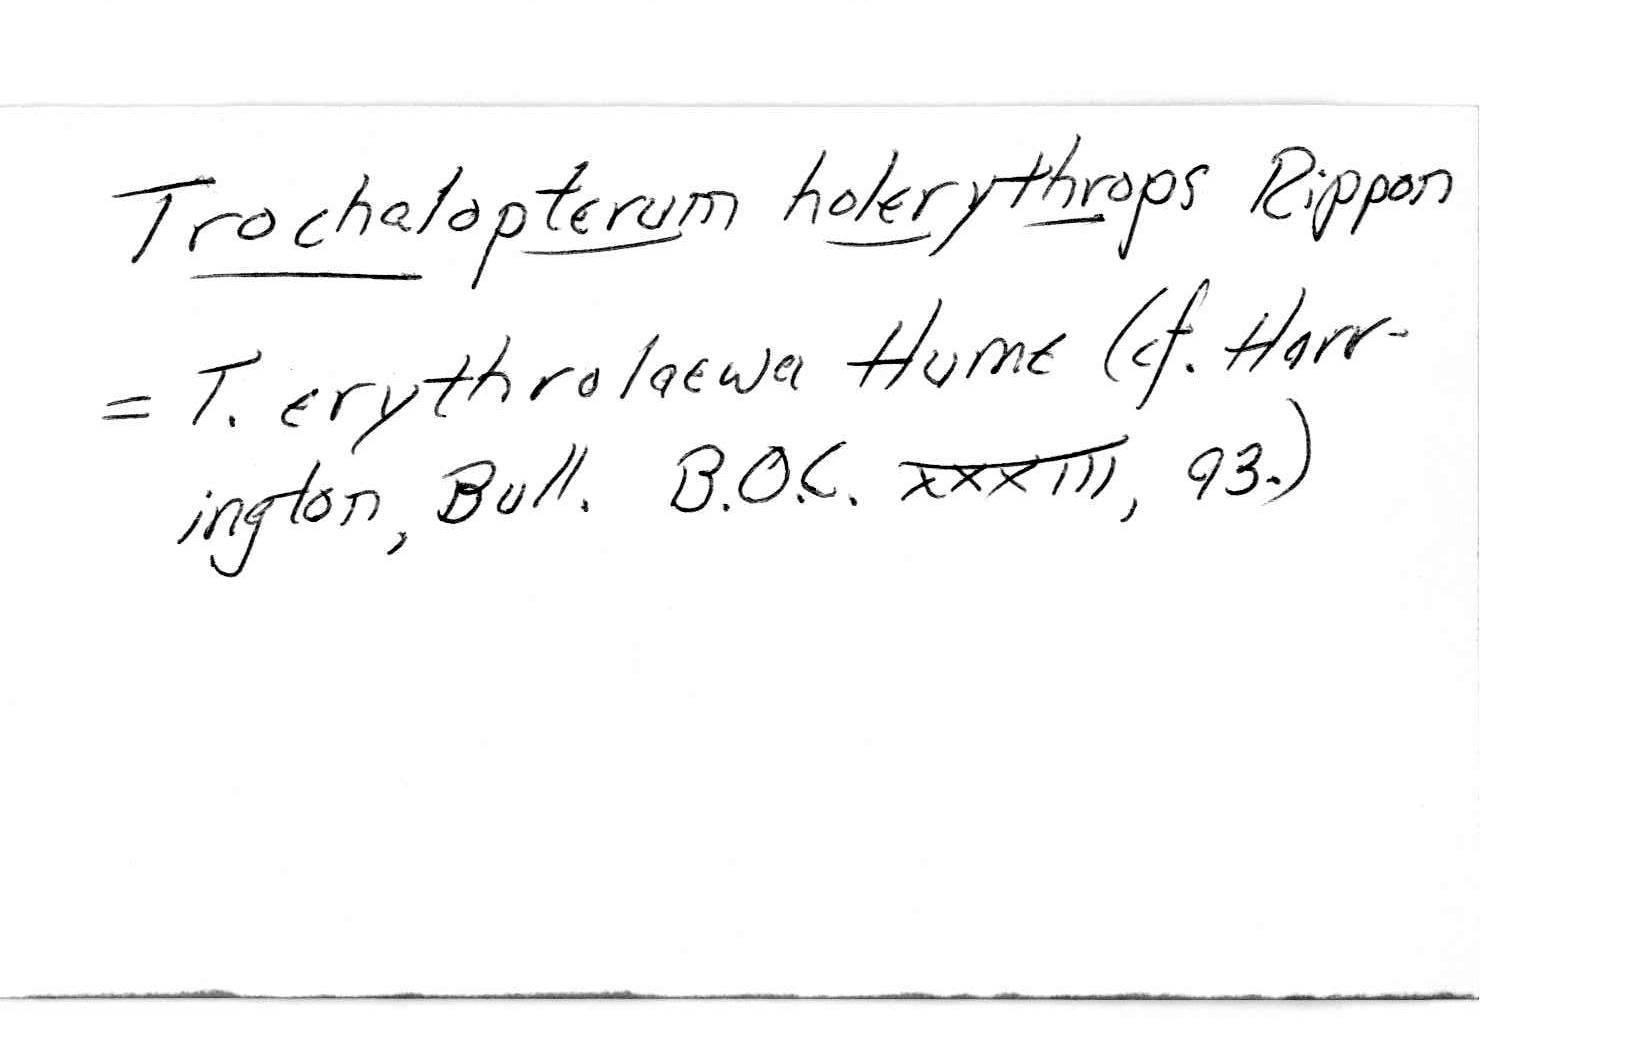 Trochalopterum holerythrops Rippon
= T. erythrolaewa Hume (cf. Harr-
ington, Bull. B.O.C. XXXIII, 93.)